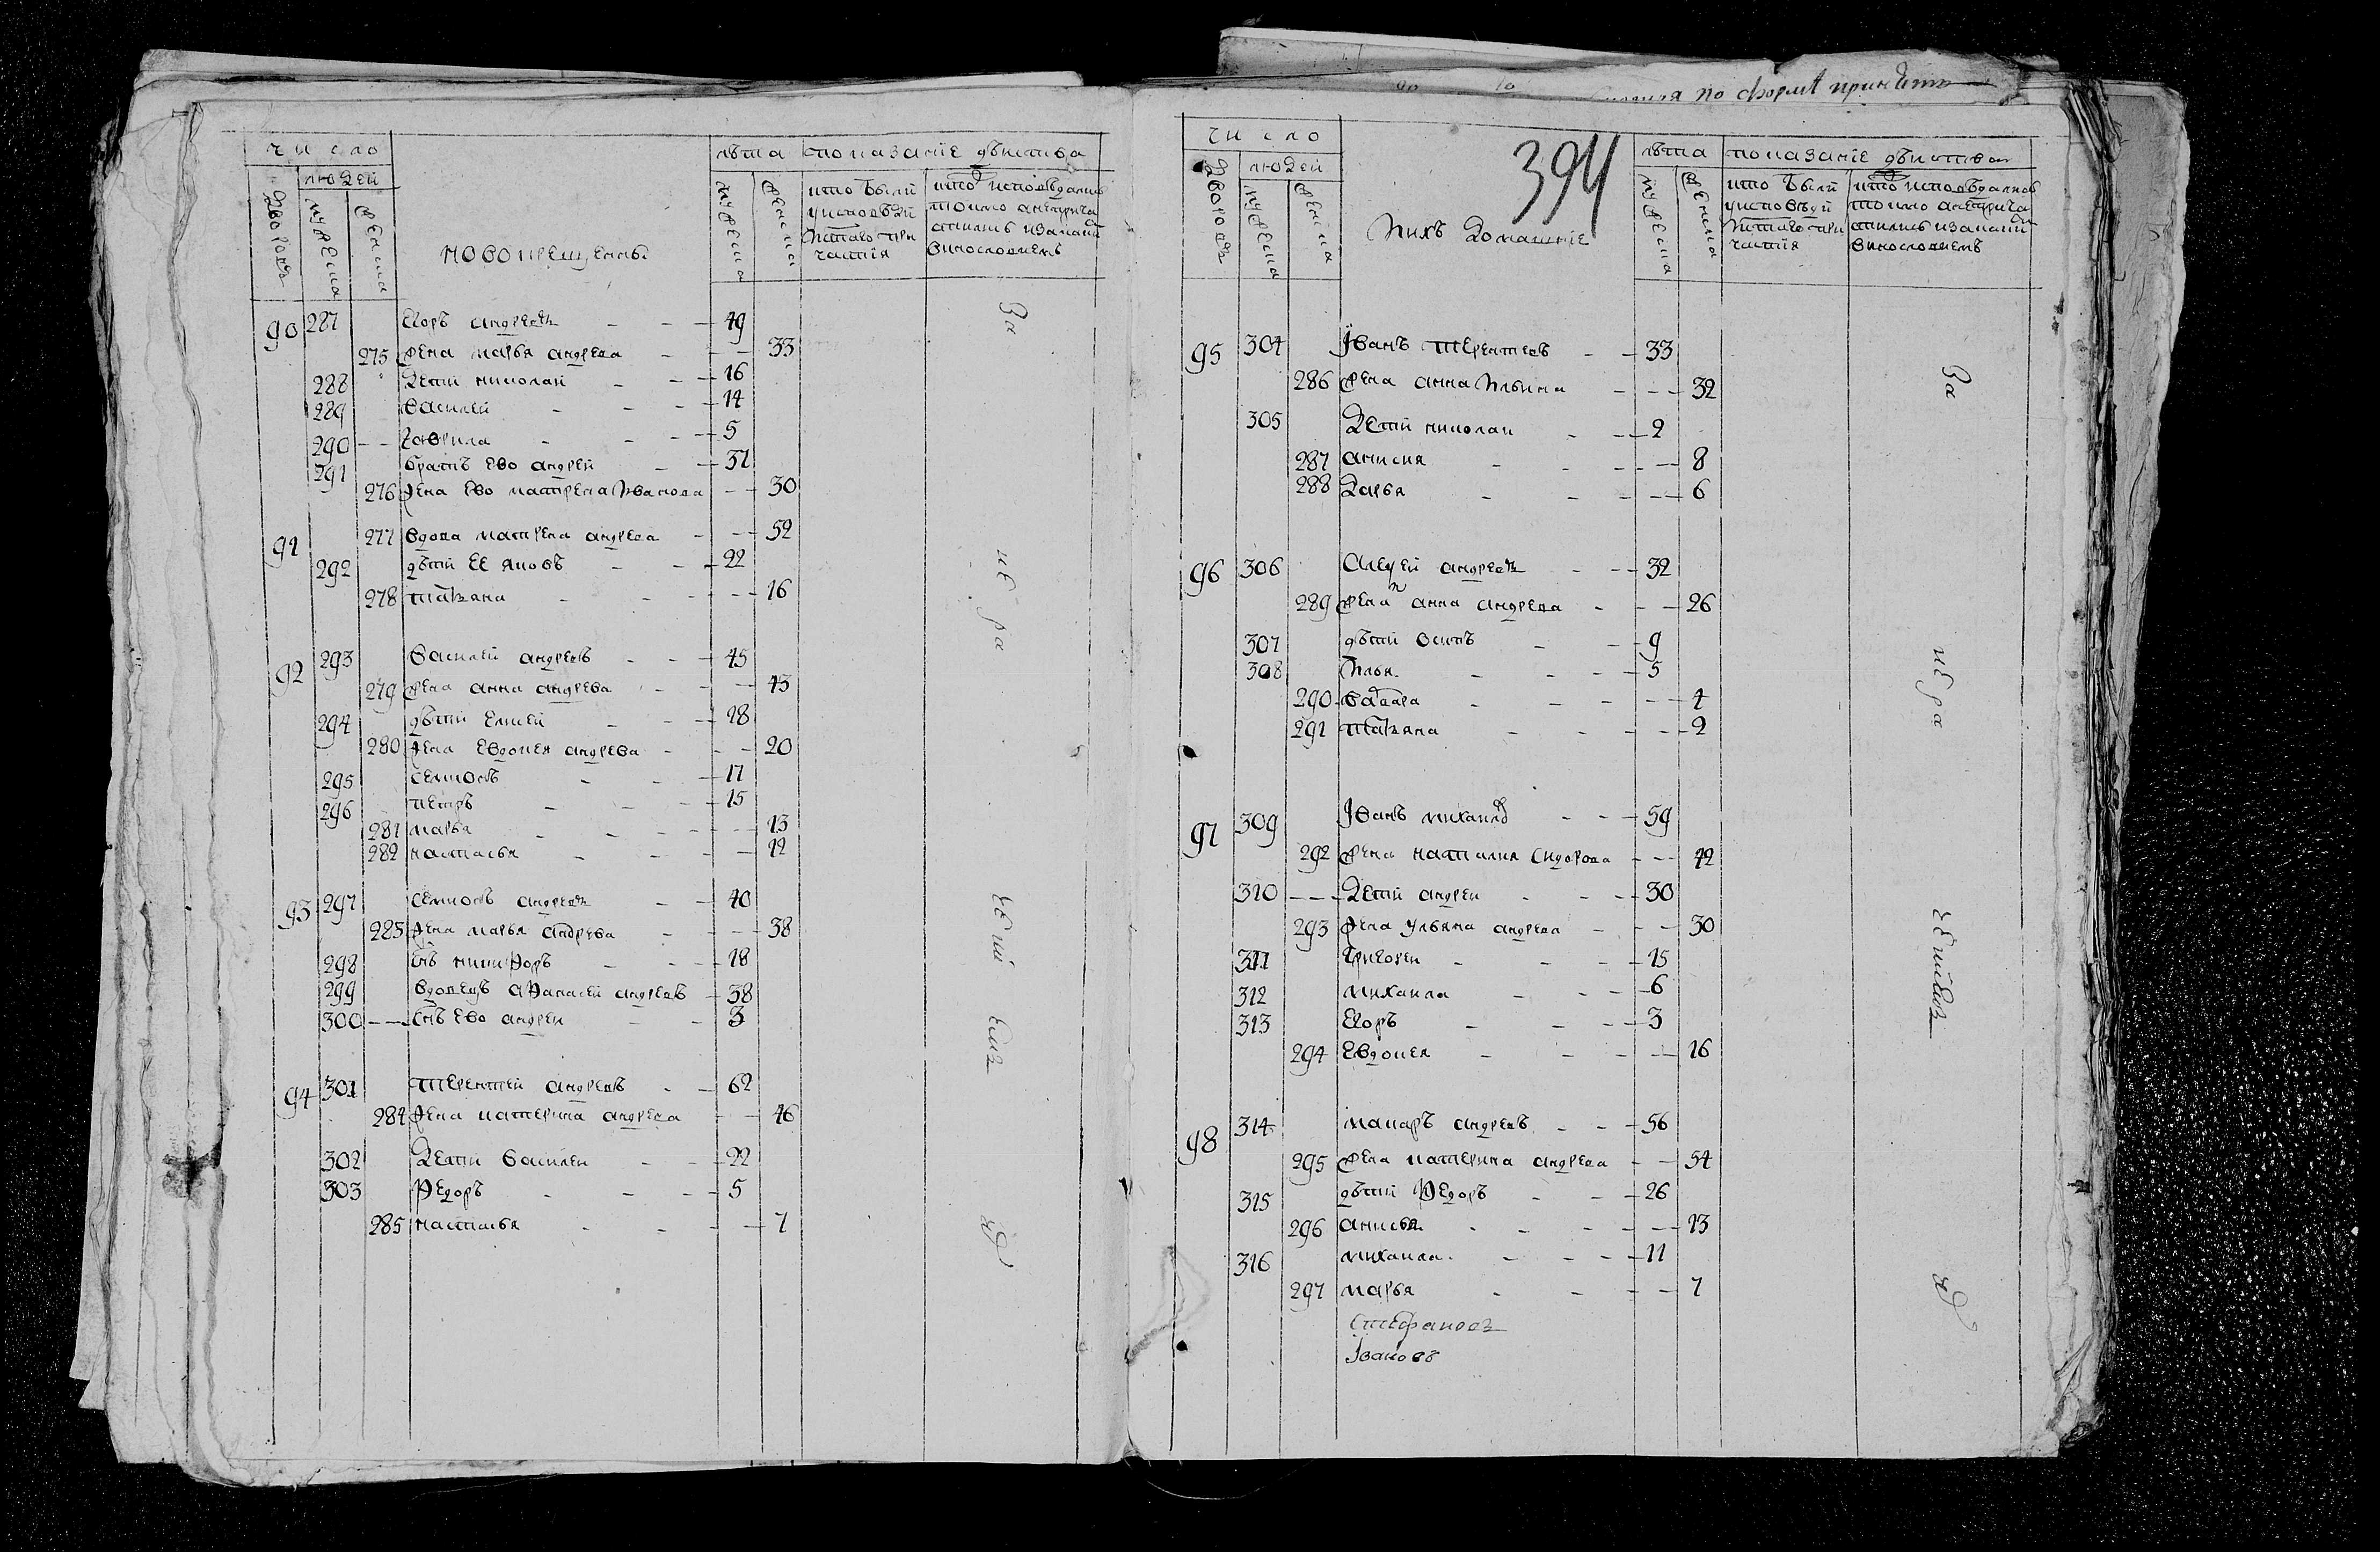 число
людей
дворовъ
мужеска
женска
новокрещенныя
лѣта
показаніе дѣиства
мужеска
женска
кто были
у исповѣди
и с̃таго при
частїя
кто исповѣдались
токмо а не прича
стились и за каким
винословием
90 287 Егоръ андреевъ - - - 49
275 жена марья андреева - - - 33
288 Дети николаи - - - 16
289 василеи - - - 14
290 - - гаврила - - - 5
291 братъ ево андреи - - 31
276 жена ево катрена Иванова - - 30
91 277 вдова матрена андреева - - - 52
292 дѣти ее яковъ - - - 22
278 татьяна - - - - 16
92 293 василеи андреевъ - - - 45
279 жена анна андреева - - - 43
294 дѣти елисеи - - - 18
280 жена евдокея андреева - - - 20
295 семионъ - - - 17
296 петръ - - - 15
281 марья - - - - 13
282 настасья - - - - 12
93 297 семионъ андреевъ - - 40
283 жена марья андреева - - - 38
298 с̃нъ никифоръ - - - 18
299 вдовецъ афанасеи андреевъ - 38
300 - - с̃нъ ево андреи - - 3
94 301 терентеи андреевъ - - 62
284 жена катерина андреева - - 46
302 Дети василеи - - - 22
303 федоръ - - - 5
285 настасья - - - - 7
За
не ра
чени
емъ
число
людей
дворовъ
мужеска
женска
394
и ихъ домашніе
лѣта
показаніе дѣиства
мужеска
женска
кто были
у исповѣди
и с̃таго при
частїя
кто исповѣдались
токмо а не прича
стились и за каким
винословиемъ
95 304 Іванъ терентеевъ - - 33
286 жена анна Ильина - - - 32
305 Дети николаи - - - 2
287 анисия - - - - 8
288 дарья - - - - 6
96 306 Алеѯеи андреевъ - - - 32
289 жена анна андреева - - - 26
307 дѣти осипъ - - 9
308 Илья - - - 5
290 варвара - - - - 4
291 татьяна - - - - 2
97 309 Іванъ михаилов - - - 59
292 жена наталия Сидорова - - - 42
310 - - - Дети андреи - - - 30
293 жена ульяна андреева - - - 30
311 григореи - - - 15
312 михаила - - - 6
313 Егоръ - - - 3
294 Евдокея - - - - 16
98 314 макаръ андреевъ - - - 56
295 жена катерина андреева - - 54
315 дѣти федоръ - - - 26
296 анисья - - - - 13
316 михаила - - - 11
297 марья - - - - 7
Стефановъ
Івановъ
За
не ра
чениемъ